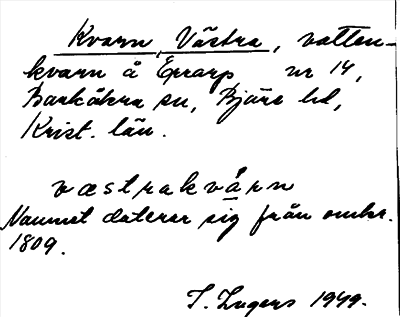 Kvarn, Västra, vatten-
kvarn å Errarp nr 14,
Barkåkra sn, Bjäre hd,
Krist. län.
væstrakvårn
Namnet daterar sig från omkr.
1809.
I. Ingers 1949.